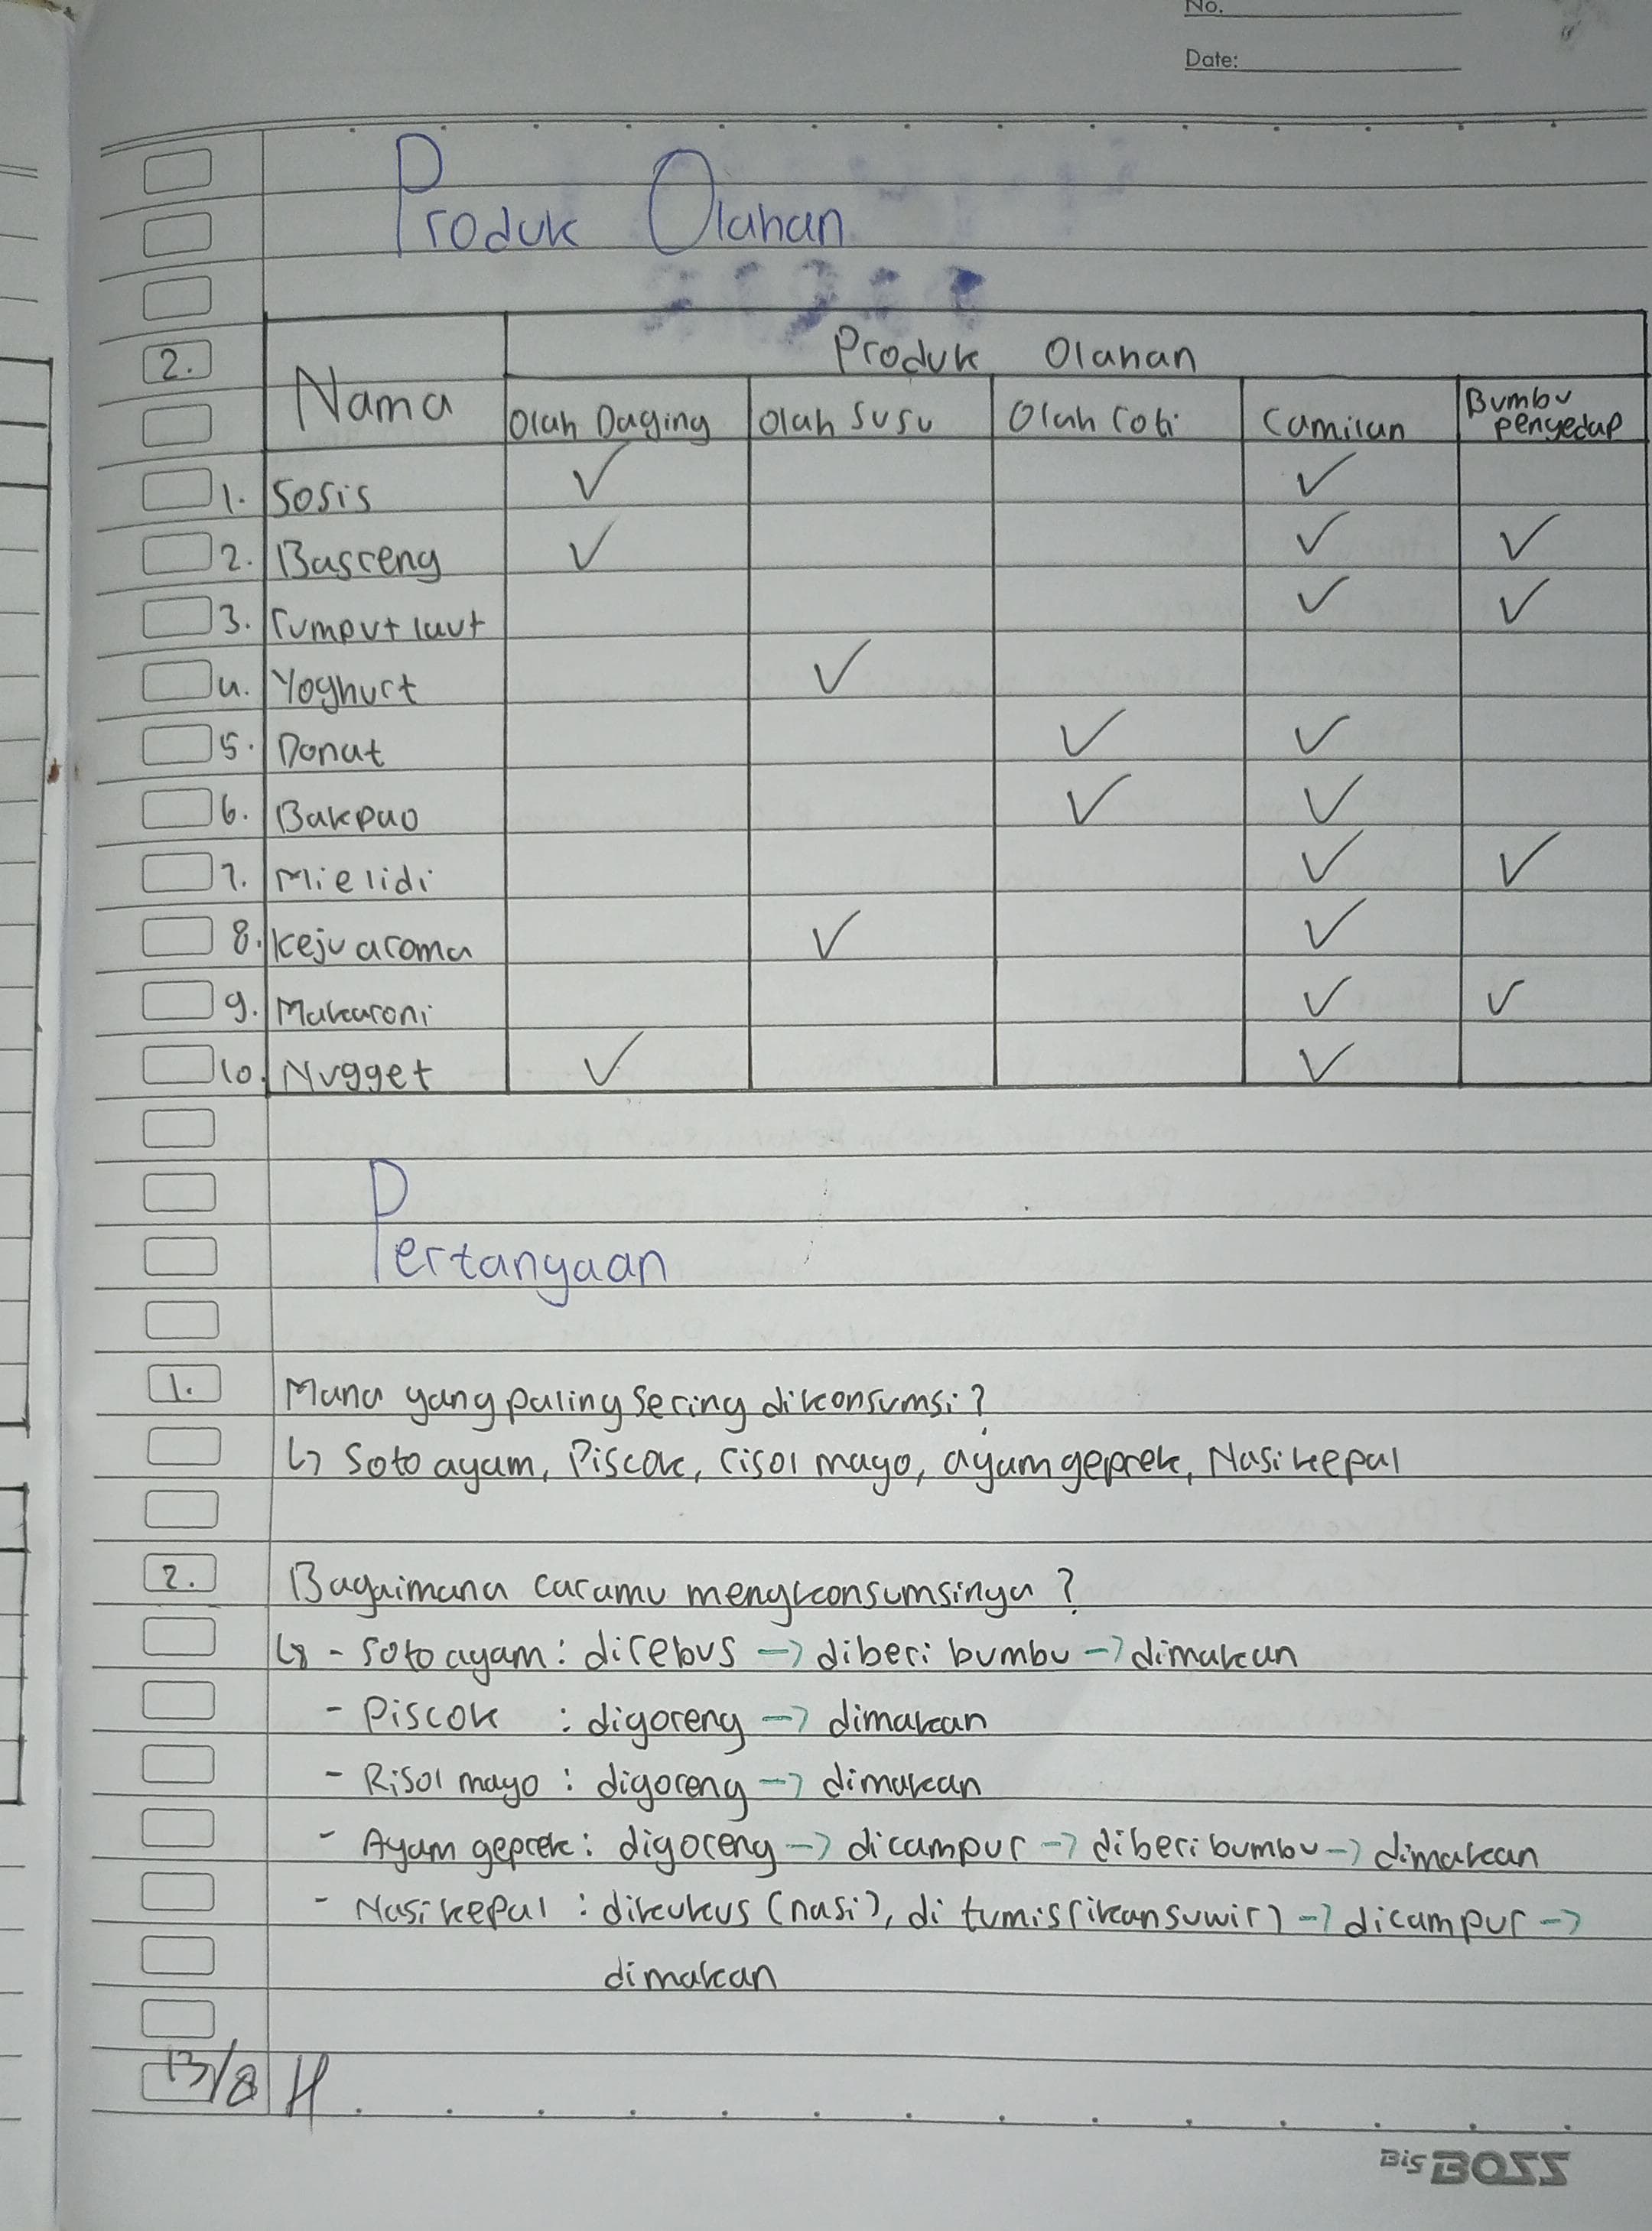 No.
Date:
Produk Olahan
2.
Nama
Produk Olahan
Olah Daging
Olah Susu
Olah roti
Camilan
Bumbu penyedap
1. Sosis ✓ ✓
2. Basreng ✓ ✓ ✓
3. rumput laut ✓ ✓
4. Yoghurt ✓
5. Donat ✓ ✓
6. Bakpao ✓ ✓
7. Mie lidi ✓ ✓
8. keju aroma ✓ ✓
9. Makaroni ✓ ✓
10. Nugget ✓ ✓
Pertanyaan
1. Mana yang paling sering dikonsumsi?
↳ Soto ayam, Piscok, risol mayo, ayam geprek, Nasi kepal
2. Bagaimana caramu mengkonsumsinya?
↳ - soto ayam : direbus → diberi bumbu → dimakan
- Piscok : digoreng → dimakan
- Risol mayo : digoreng → dimakan
- Ayam geprek : digoreng → dicampur → diberi bumbu → dimakan
- Nasi kepal : dikukus (nasi), di tumis (ikan suwir) → dicampur →
dimakan
13/8
BiG BOSS